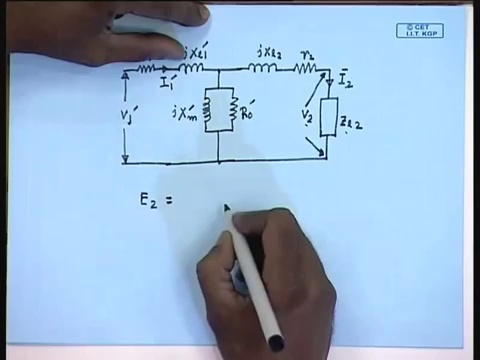 © CET
I.I.T. KGP
jXℓ1' jXℓ2 r2
I1' I̅2
V1' jX'm R0' V2 Zℓ2
E2 =